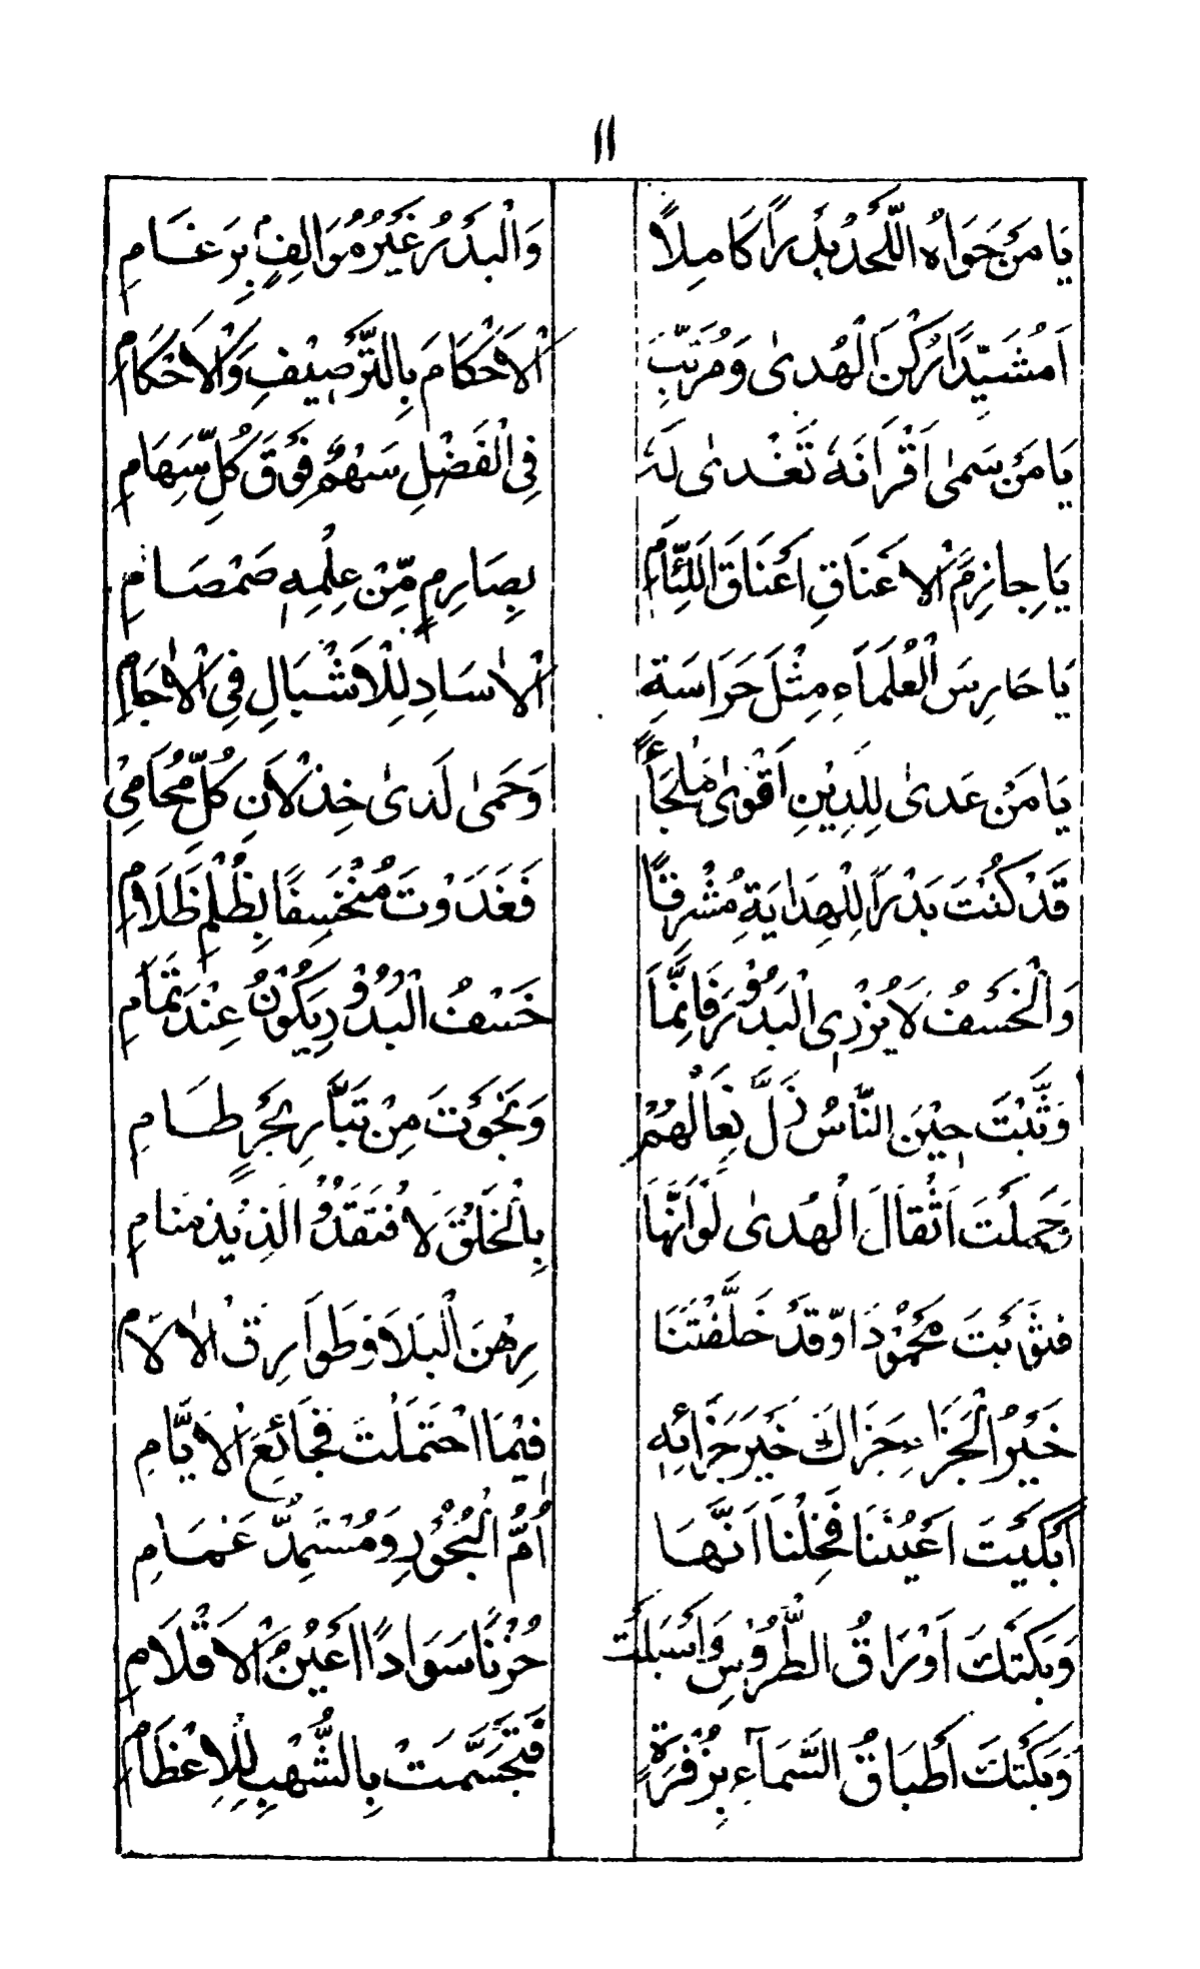 ۱۱
يَا مَنْ حَوَاهُ اللَّحْدُ بَدْرًا كَامِلًا وَالْبَدْرُ غَيْرُ مُوَالِفٍ بِرَغَامِ
اَمُشَيِّدًا رُكْنَ الْهُدىٰ وَمُرَتِّبَ الْاَحْكَامَ بِالتَّرْصِيْفِ وَالْاَحْكَامِ
يَا مَنْ سَمىٰ اَقْرَانَهُ تَغْدىٰ لَهُ فِى الْفَضْلِ سَهْمٌ فَوْقَ كُلِّ سِهَامِ
يَا جَازِمَ الْاَعْنَاقِ اَعْنَاقَ اللِّئَامِ بِصَارِمٍ مِّنْ عِلْمِهٖ صَمْصَامِ
يَا حَارِسَ الْعُلَمَاءِ مِثْلَ حَرَاسَةِ الْاٰسَادِ لِلْاَشْبَالِ فِى الْاٰجَامِ
يَا مَنْ عَدىٰ لِلدِيْنِ اَقْوىٰ مَلْجَأً وَحَمىٰ لَدىٰ خِذْلَانِ كُلِّ مُحَامِىْ
قَدْ كُنْتَ بَدْرًا لِلْهِدَايَةِ مُشْرِقًا فَغَدَوْتَ مُنْخَسِفًا بِظُلْمِ ظَلَامِ
وَالْخَسْفُ لَا يُزْرِى الْبَدُوْرَ فَاِنَّمَا خَسْفُ الْبُدُوْرِ يَكُوْنُ عِنْدَ تَمَامِ
وَثَبَتَّ حِيْنَ النَّاسُ زَلَّ نِعَالُهُمْ وَنَجَوْتَ مِنْ تَبَّارِ بَحْرٍ طَامِ
وَحَمَلْتَ اَثْقَالَ الْهُدىٰ لَوْ اَنَّهَا بِالْخَلْقِ لَافْتَقَدُوْا لَذِيْذَ مَنَامِ
فَثَوَيْتَ مَحْمُوْدًا وَّقَدْ خَلَّفْتَنَا رِهْنَ الْبَلَا وَطَوَارِقَ الْاٰلَامِ
خَيْرُ الْجَزَاءِ جَزَاكَ خَيْرَ جَزَائِهٖ فِيْمَا احْتَمَلْتَ فَجَائِعَ الْاَيَّامِ
اَبْكَيْتَ اَعْيُنَنَا فَخِلْنَا اَنَّهَا اُمُّ الْبُحُوْرِ وَمُسْتَمِدُّ غَمَامِ
وَبَكَتْكَ اَوْرَاقُ الطُّرُوْسِ وَاَسْبَلَتْ حُزْنًا سَوَادًا اَعْيُنُ الْاَقْلَامِ
وَبَكَتْكَ اَطْبَاقُ السَّمَآءِ بِزَفْرَةٍ فَتَجَسَّمَتْ بِالشُّهْبِ لِلْاِعْظَامِ